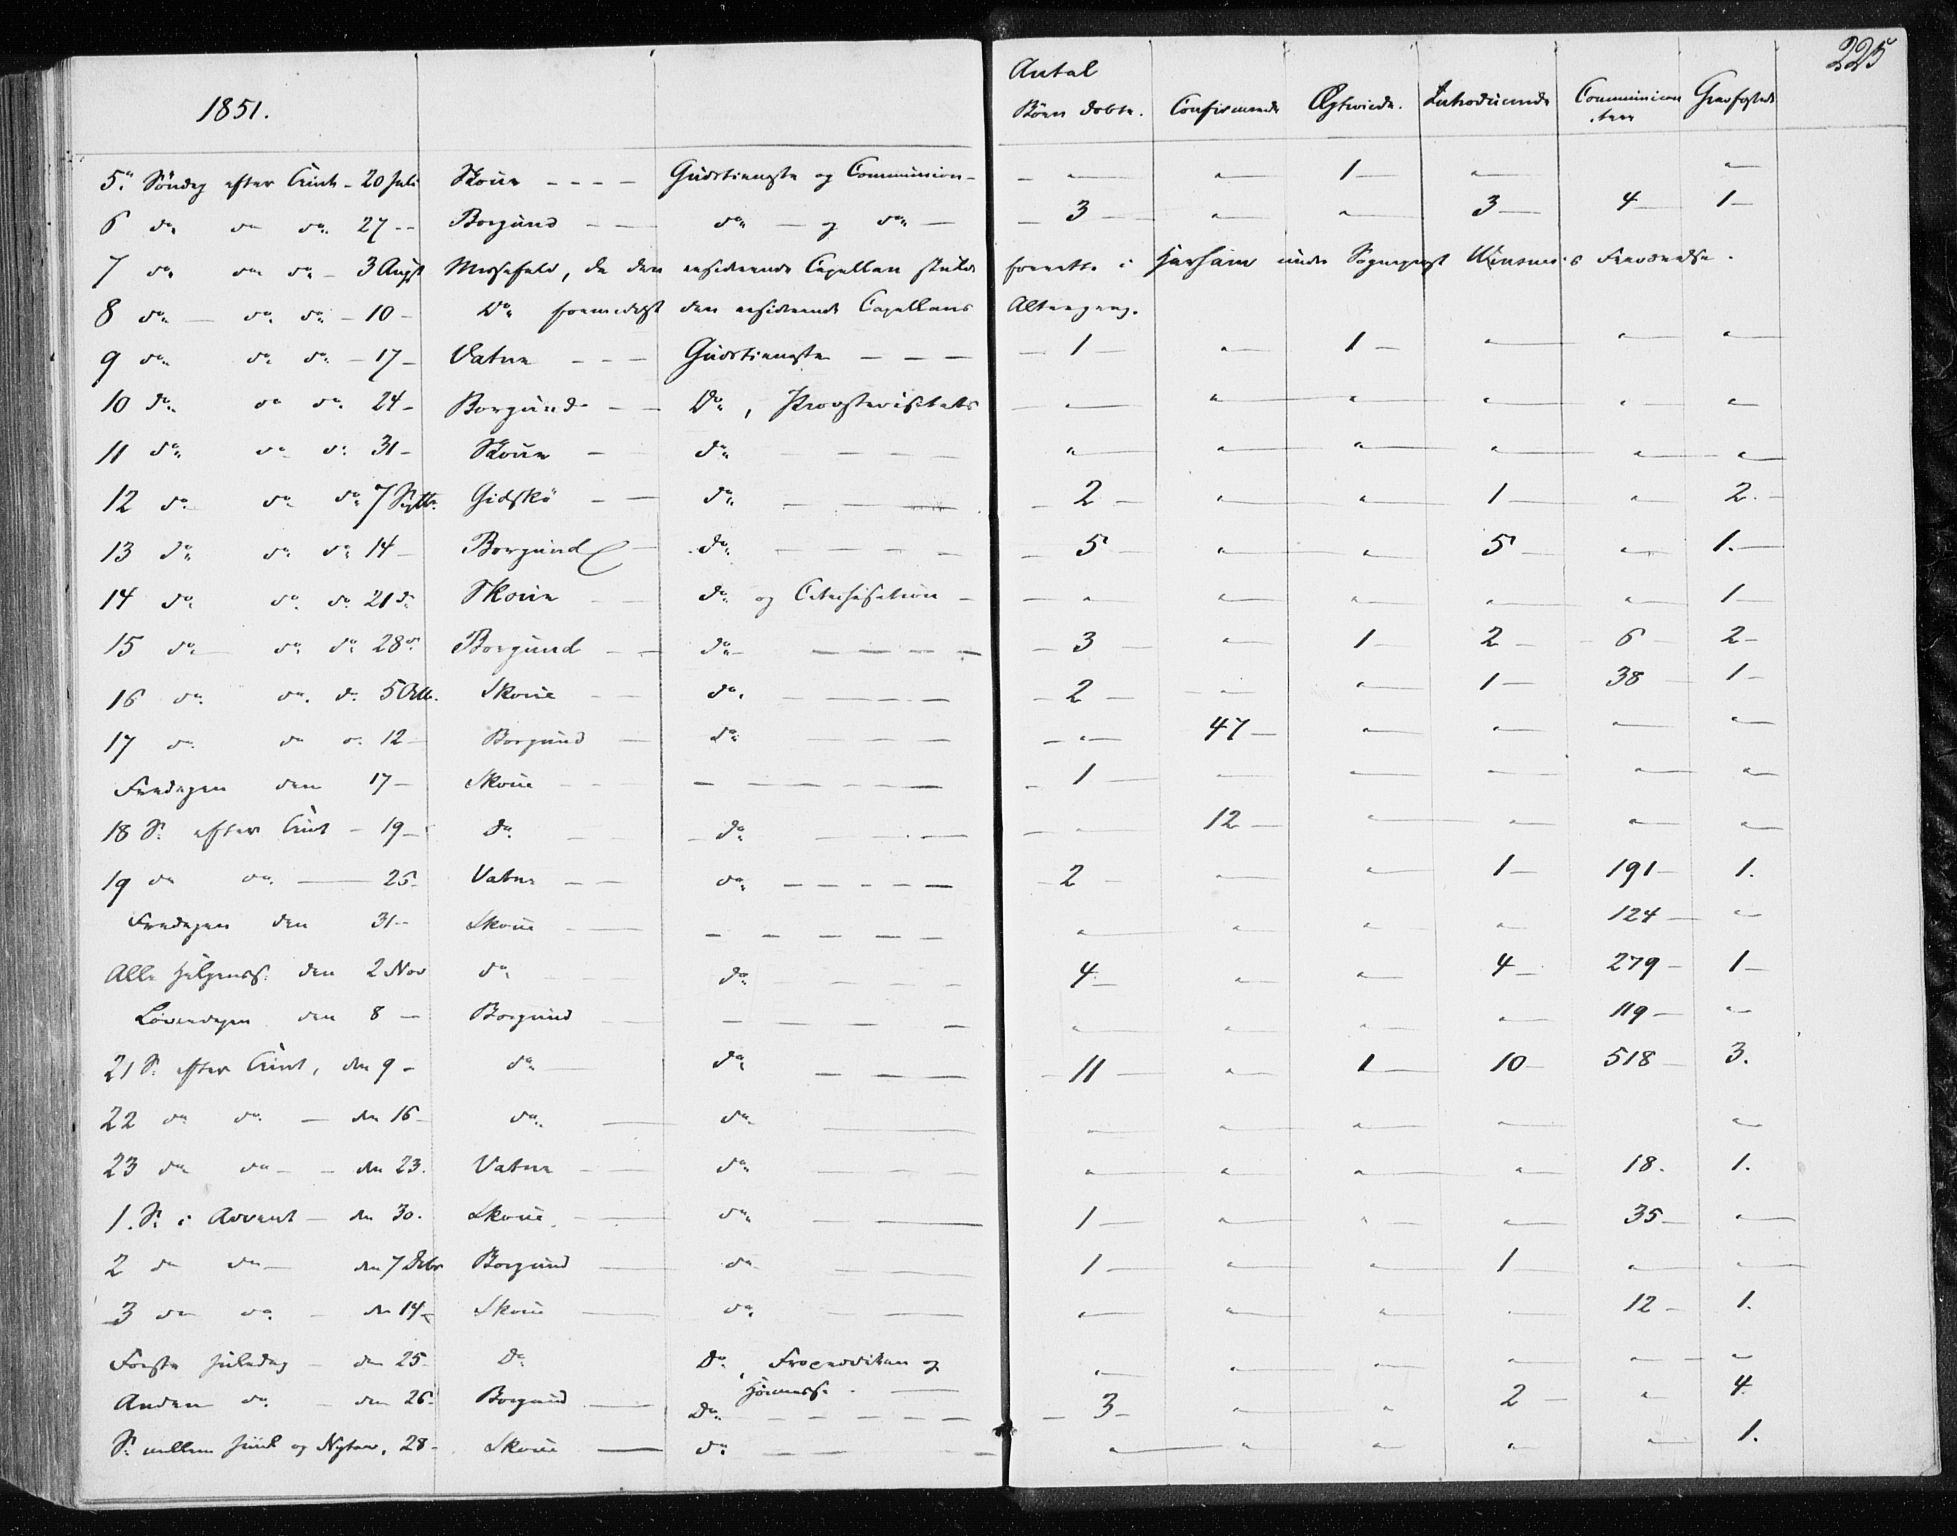 225
1851.
Antal
Børn døbte. Confirmerede Ægteviede. Introducerede Communicanterne Gravfæstede
5te Søndag efter Trint. - 20 Juli Skoue - - - - Gudstieneste og Communion - - " " 1 - " "
6 do do do 27 - - Borgund - - do - og do - - 3 - " " 3 - 4 1 -
7 do do do - 3 Augst Messefald, da den residerende Capellan skulde forrette i Harham under Sognepræst Fraværelse.
8 do - do do - 10 - Do formedelst den residerende Capellans Altergang.
9 do do do - 17 - Vatne - - - Gudstieneste - - - - 1 - " 1 - " " "
10 do do do 24 - Borgund - - Do, Provstevisitats - " " " " " "
11 do do do 31 - Skoue - do - - - - " " " " " "
12 do do do 7 Septb. Gidskö - - do - - - 2 - " " 1 - " 2. -
13 do do do 14 - Borgund - do - - - - - 5 - " " 5 - " 1. -
14 do do do 21 do Skoue - - do og Catechisation - - " " " " " 1 -
15 do - do do 28 do Borgund - - do - - - - - - 3 - " 1 - 2 - 6 - 2 -
16 do do do 5 Octb. Skoue - - do. - - - - - 2 - " " 1 - 38 1 -
17 do do do 12 - Borgund - do - - - - - " 47 - " " " "
Fredagen den 17 - Skoue - - - - - - - - - 1 - " " " " "
18 S. efter Trint - 19 - do - - do - - - - " 12 - " " " "
19 do do. - 25 - Vatne - - do - - - - - - 2 - " " 1 - 191 - 1.
Fredagen den 31 - Skoue - - - - - - - " " " " 124 - "
Alle Helgenss. den 2 Nov do - - do - - - - 4 - " " 4 - 279 - 1 -
Løverdagen den 8 - Borgund - - - - - - " " " " 119 - "
21 S. efter Trint, den 9 - do - do - - - - 11 - " 1 - 10 - 518 - 3.
22 do do. - den 16 - do. - do - " " " " "
23 do do - - den 23. Vatne - - do - - " " " " 18. 1.
1. S. i Advent - den 30. Skoue - - do - - 1 - " " " 35 - "
2 do do - den 7 Decbr Borgund - do - - 1 - " " 1 - " "
3 do do. - den 14 - Skoue - do. - - " " " - 12 - 1.
Første Juledag - den 25 - Do Do. Froprædiken og " " " " " "
Høimesse. -
Anden do. - den 26 - Borgund - Do. - - - - - - 3 - " " 2 - " 4.
S. mellem Juul og Nytaar, 28 - Skoue - do - - - " " " " " 1.